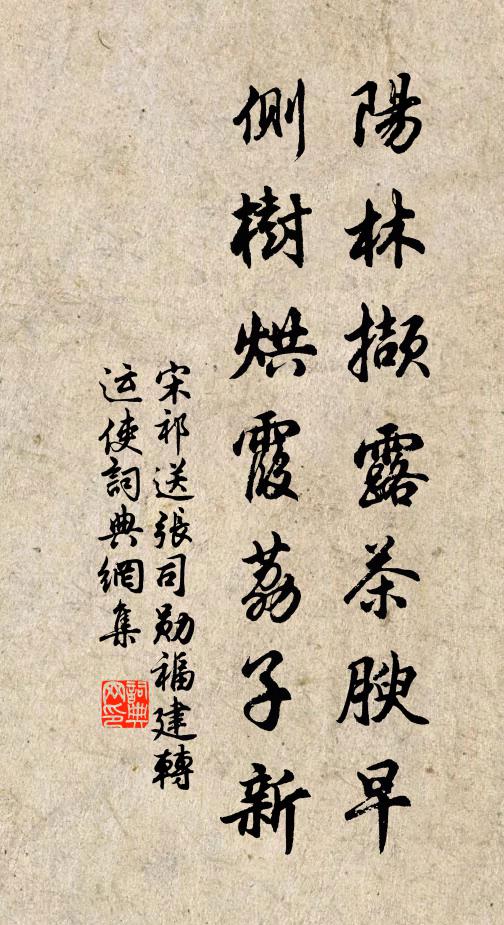 陽林擷露茶腴早
側樹烘霞荔子新
宋祁送張司勛福建轉
运使詞典網集
詞典网印